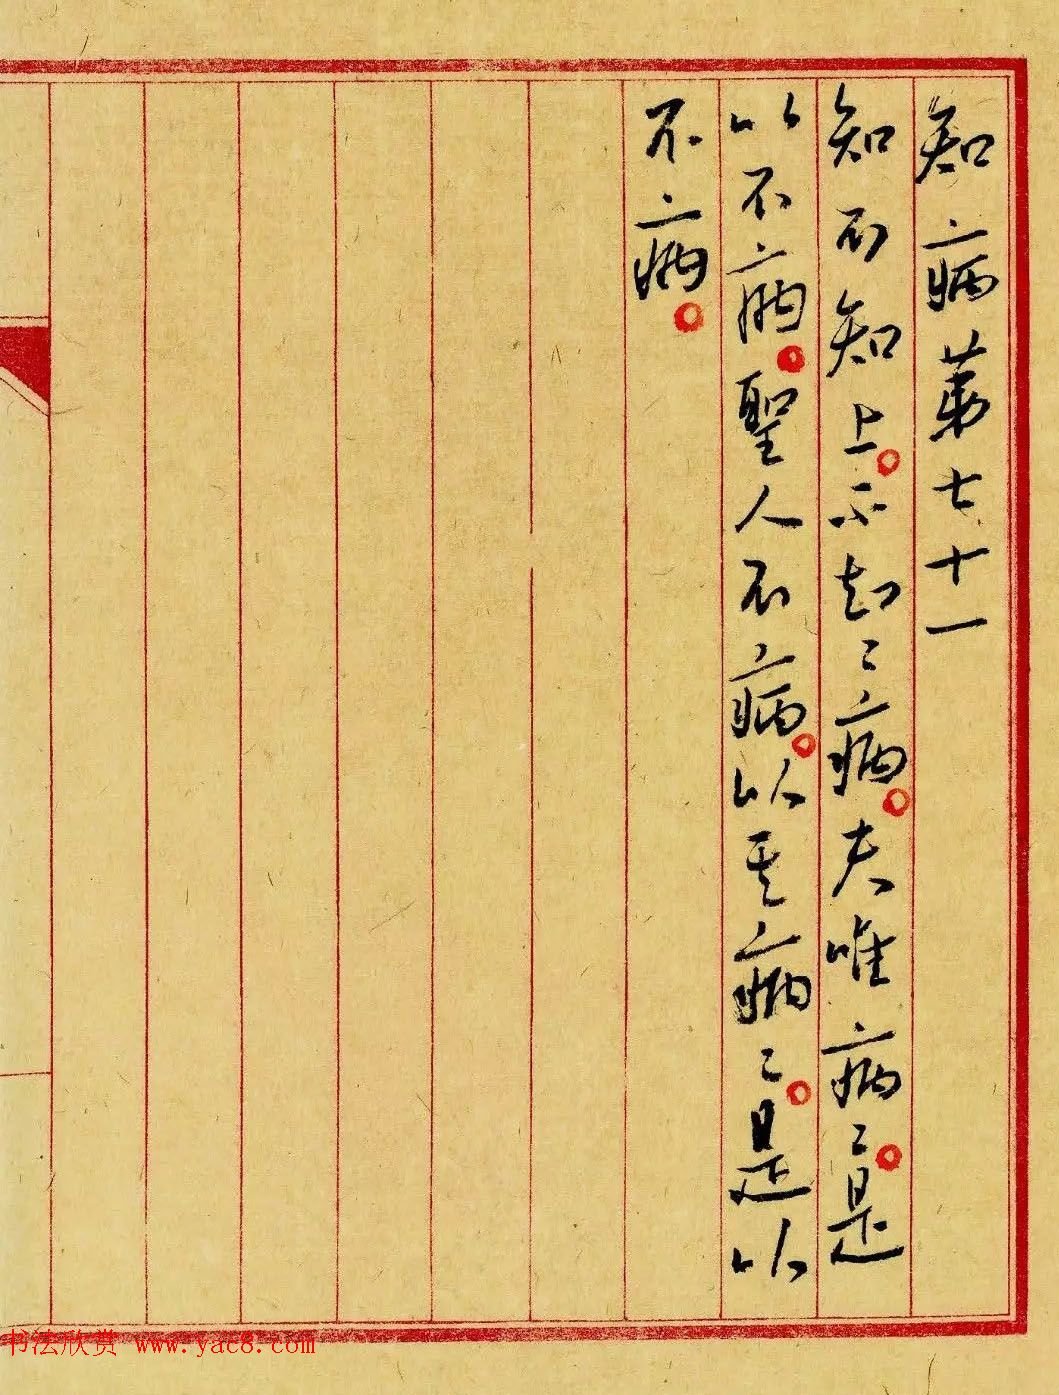 知病第七十一
知不知上。不知〻病。夫唯病〻。是
以不病。聖人不病。以其病〻。是以
不病。
书法欣赏 www.yac8.com